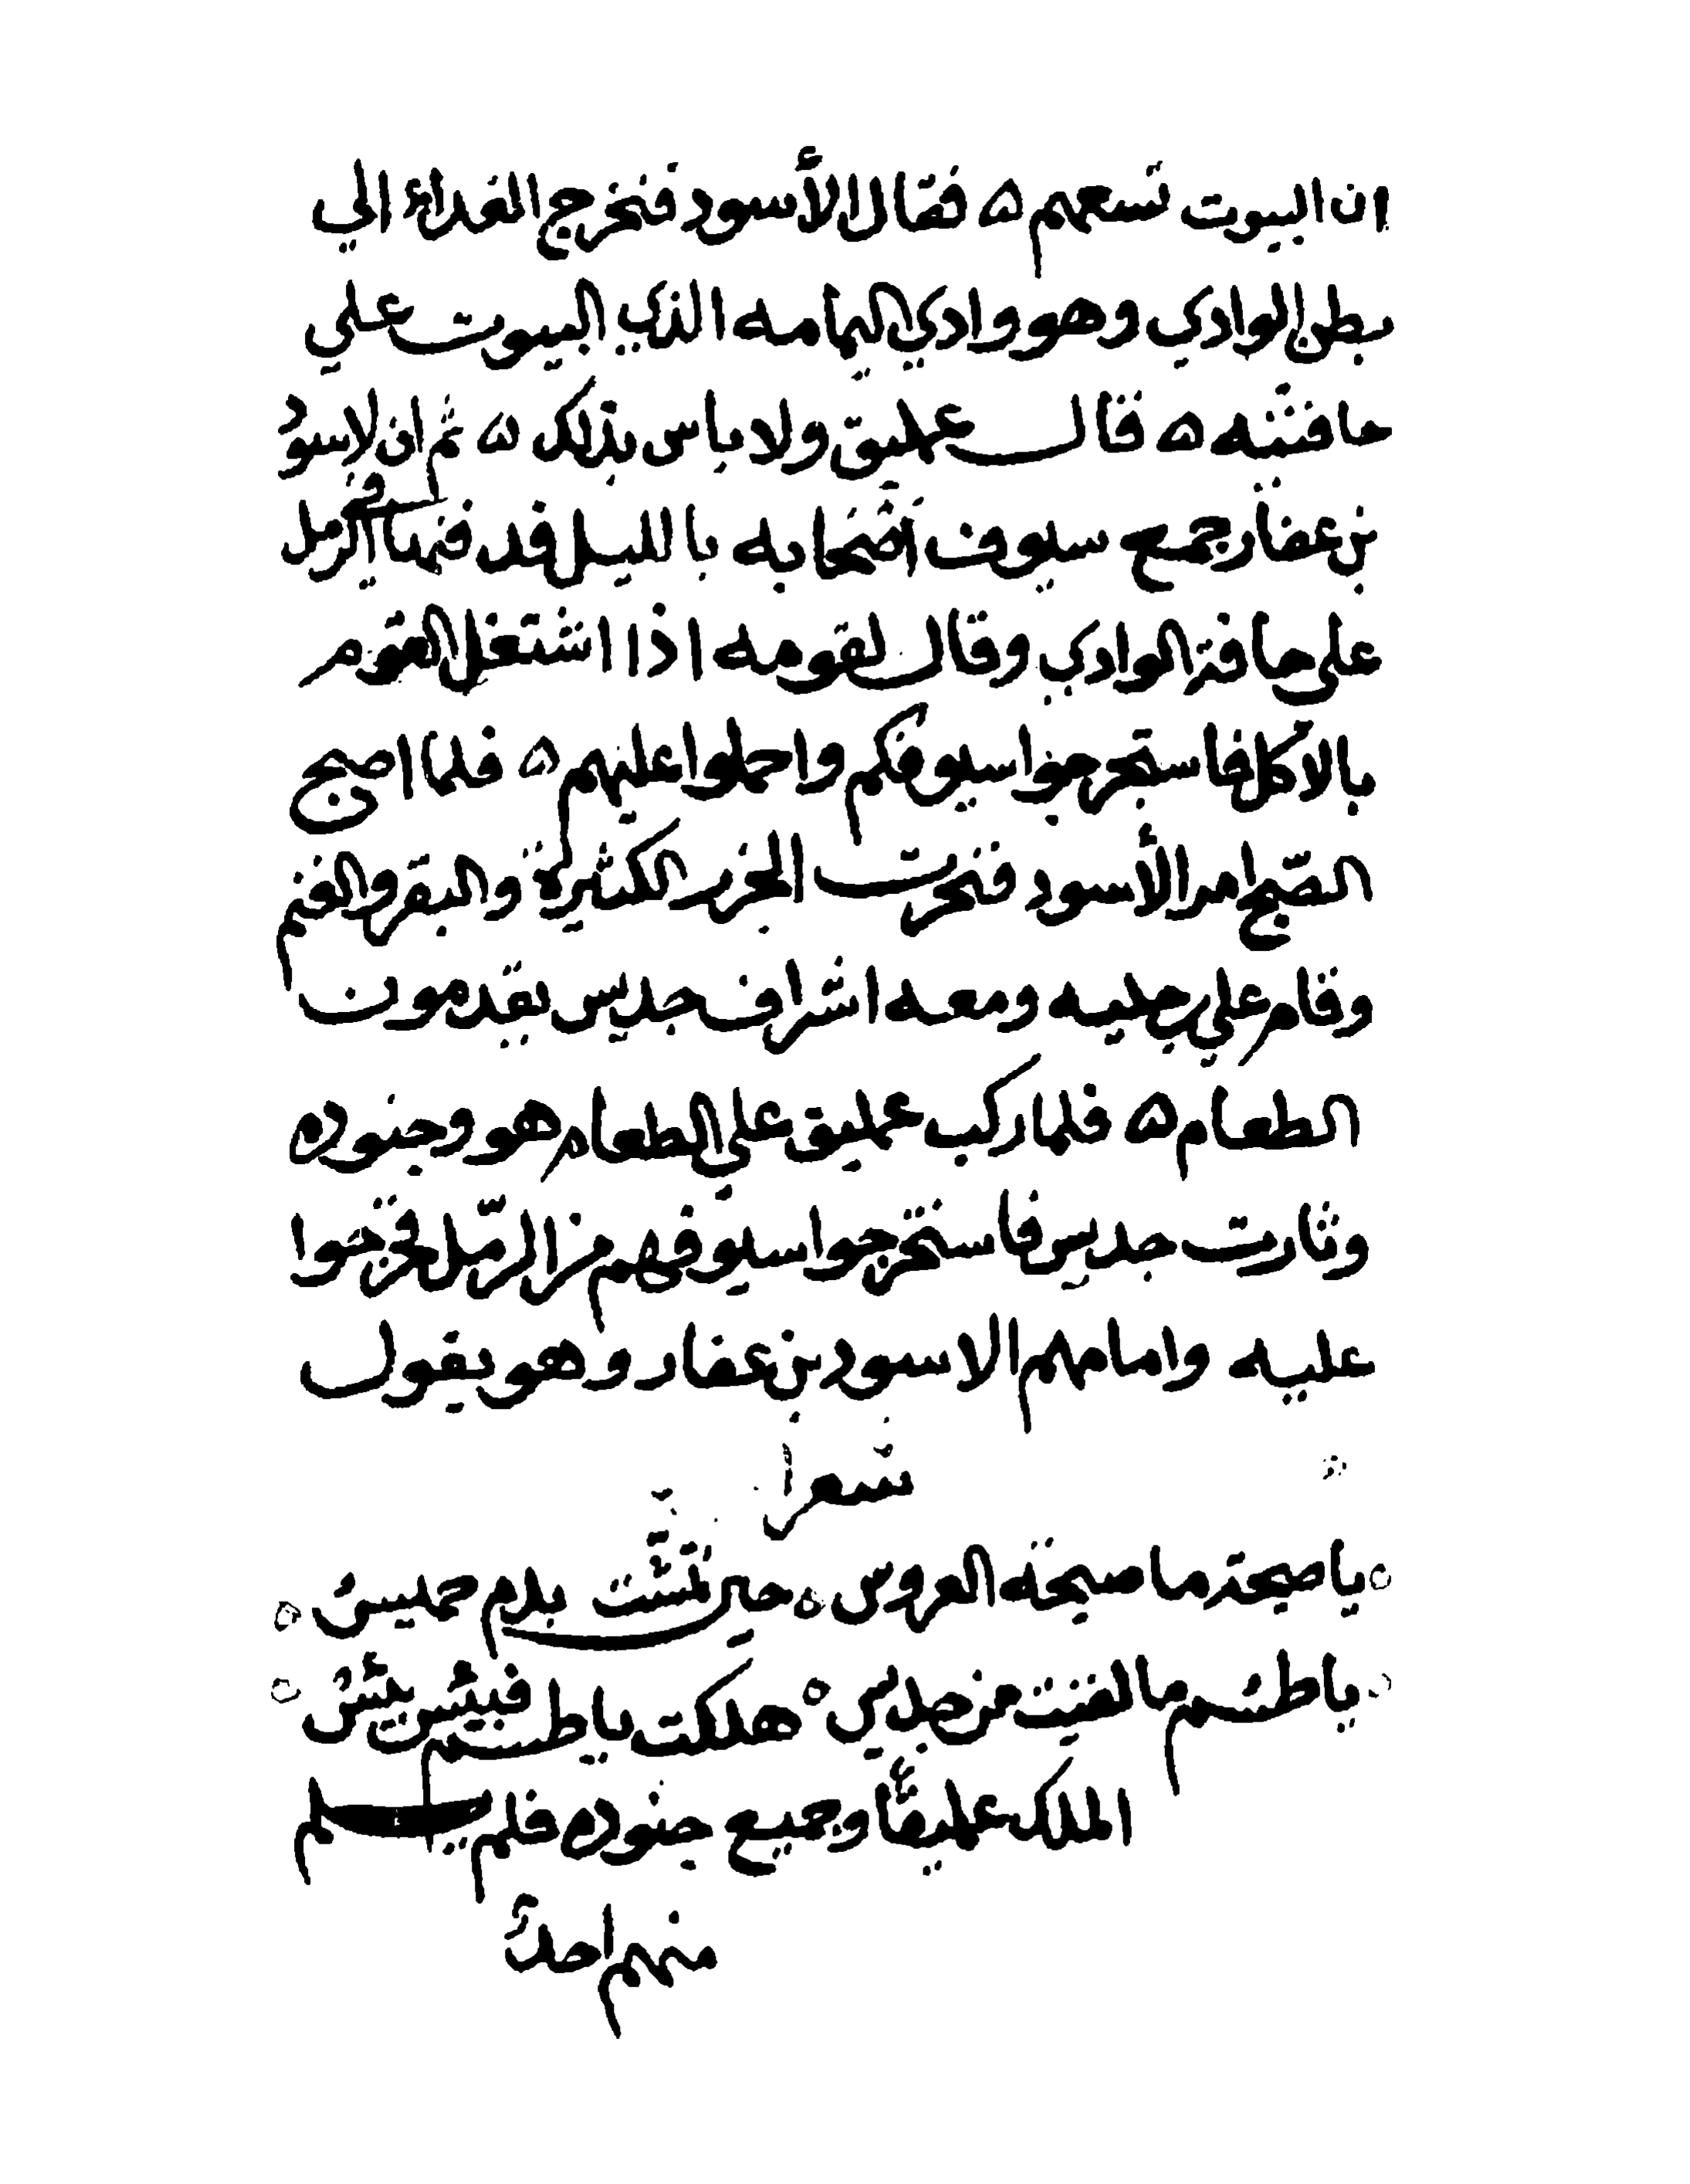 ان البيوت تسعهم ه فقال الأسود فنخرج الغداء الي
بطن الوادي وهو وادي اليمامه الذي البيوت علي
حافتيه ه قال عمليق ولا باس بذلك ه ثم ان لاسود
بن غفار جمع سيوف اصحابه بالليل فدفنها في الرمل
علي حافة الوادي وقال لقومه اذا اشتغل القوم
بالاكل فاستخرجوا سيوفكم واحملوا عليهم ه فلما اصبح
الصبح امر الأسود فنحرت الجزر الكثيرة والبقر والغنم
وقام علي رجليه ومعه اشراف جديس يقدمون
الطعام ه فلما ركب عمليق علي الطعام هو وجنوده
وثارت جديس فاستخرجوا سيوفهم من الرمل فخرجوا
عليه وامامهم الاسود بن غفار وهو يقول
شعرا
يا صبحة ما صبحة العروس ه حين تمشت بدم جميس
يا طسم ما لقيت من جديس ه هلكت يا طسم فبيس بيس
الملك عمليقا وجميع جنوده فلم يسلم
منهم احد